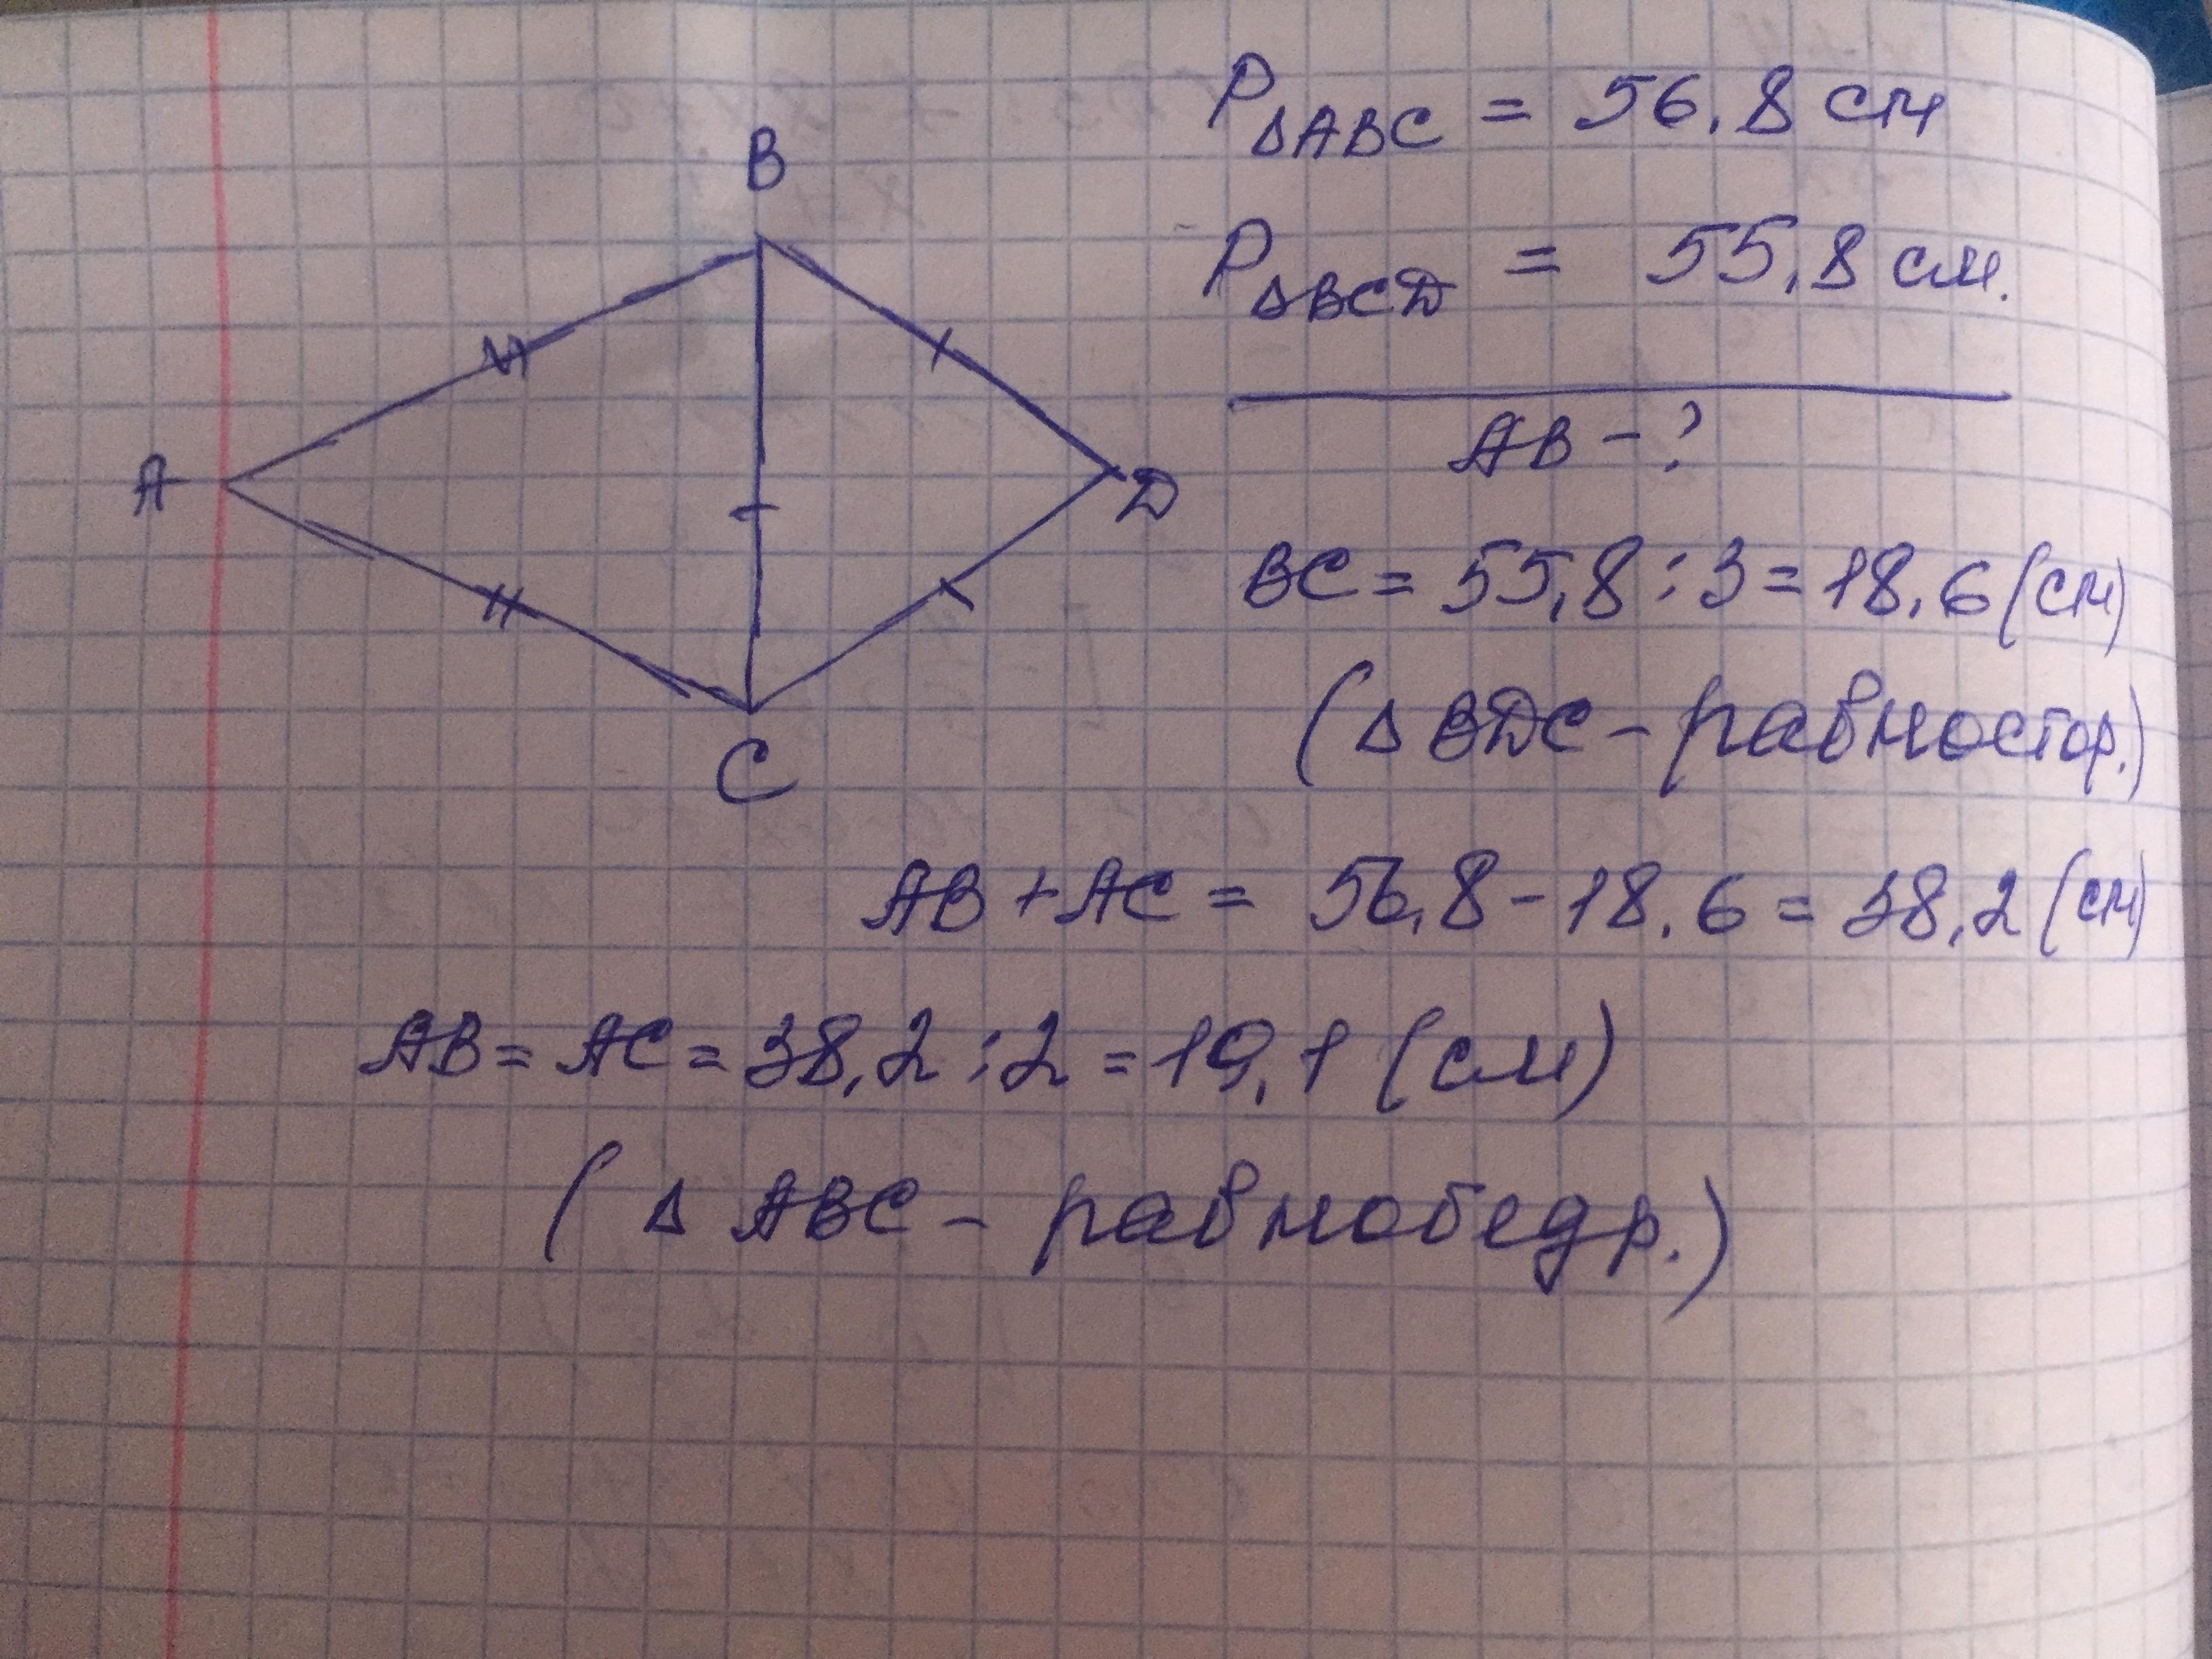 P△ABC = 56,8 см
P△BCD = 55,8 см.
AB - ?
B
A
D
C
BC = 55,8 : 3 = 18,6 (см)
(△ BDC - равностор.)
AB + AC = 56,8 - 18,6 = 38,2 (см)
AB = AC = 38,2 : 2 = 19,1 (см)
(△ ABC - равнобедр.)